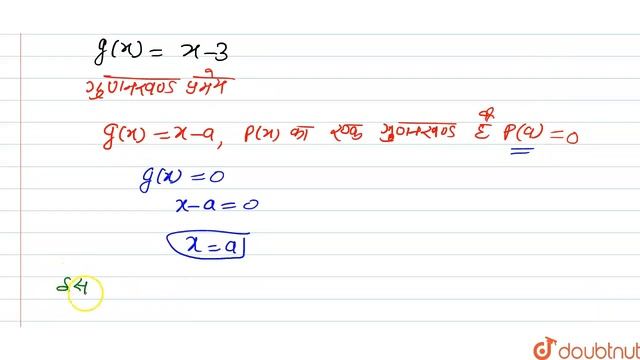 g(x) = x-3
गुणनखण्ड प्रमेय
g(x) = x-a, P(x) का एक गुणनखण्ड है P(a) = 0
g(x) = 0
x-a = 0
x = a
doubtnut